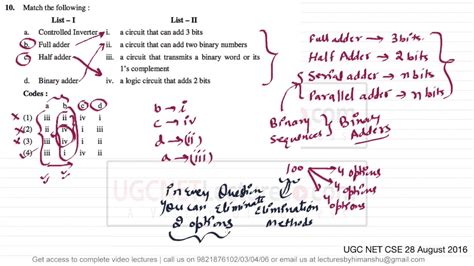 10. Match the following :
List – I List – II
a. Controlled Inverter i. a circuit that can add 3 bits
b. Full adder ii. a circuit that can add two binary numbers
c. Half adder iii. a circuit that transmits a binary word or its
1's complement
d. Binary adder iv. a logic circuit that adds 2 bits
Codes :
a b c d
(1) iii ii iv i
(2) ii iv i iii
(3) iii iv i ii
(4) iii i iv ii
Full adder → 3 bits.
Half Adder → 2 bits
Serial adder → n bits
Parallel adder → n bits
Binary Sequences } Binary Adders
b → i
c → iv
d → (ii)
a → (iii)
In every Question
you can Eliminate
2 options
Elimination
Methods
100
4 options
4 options
4 options
UGC NET CSE 28 August 2016
Get access to complete video lectures | call us on 9821876102/03/04/06 or email us at lecturesbyhimanshu@gmail.com